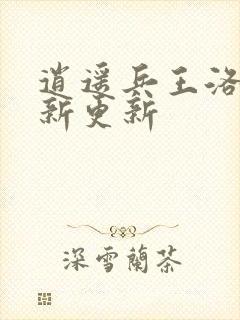 逍遥兵王洛
新更新
深雪蘭茶